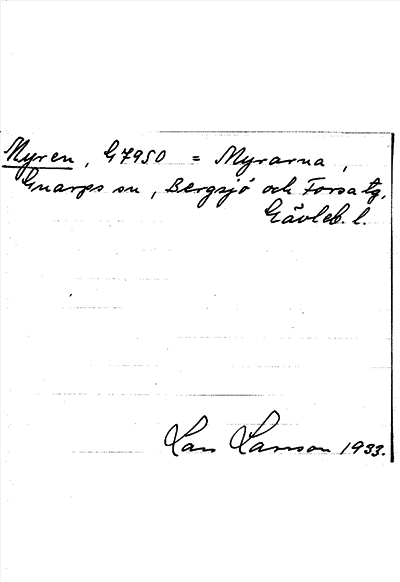 Myren, G7950 = Myrarna,
Gnarps sn, Bergsjö och Forsa tg,
Gävleb. l.
Lars Larsson 1933.